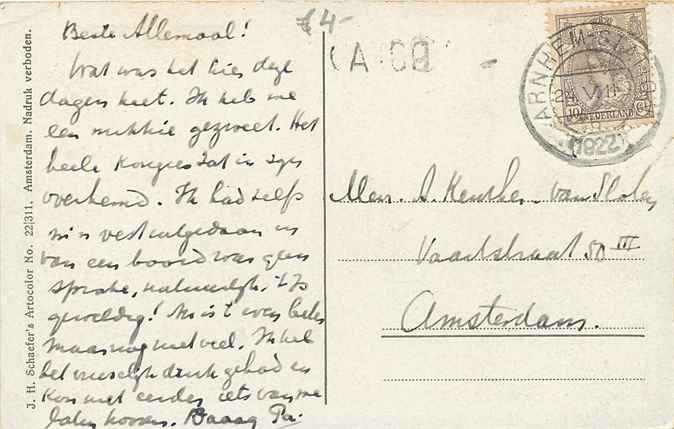 Beste Allemaal!
Wat was het hier deze
dagen heet. Ik heb me
een mikkie gezweet. Het
heele Kongres zat in zijn
overhemd. Ik had zelfs
m'n vest uitgedaan en
van een boord was geen
sprake, natuurlijk. 't Is
geweldig! Nu is 't weer beter
maar nog niet veel. Ik heb
het vreeselijk druk gehad en
kon niet eerder iets van me
laten hooren. Daaag Pa.
£4-
ARNHEM-STATION
1922
10 NEDERLAND Ct
Mevr. A. Keuther - van
Vaartstraat 50 III
Amsterdam.
J. H. Schaefer's Artocolor No. 22|311. Amsterdam. Nadruk verboden.